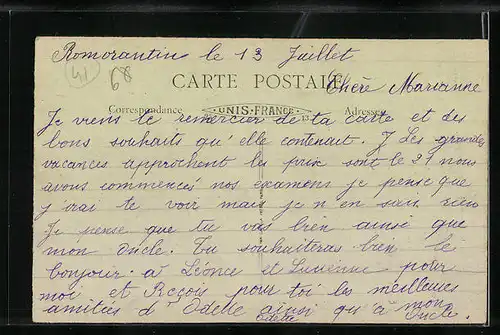 Romorantin le 13 Juillet
41
68
CARTE POSTALE
Chère Marianne
Correspondance
UNIS-FRANCE
Adresse
Je viens te remercier de ta carte et des
bons souhaits qu'elle contenait. Les grandes
vacances approchent les prix sont le 27 nous
avons commencés nos examens je pense que
j irai te voir mais je n en sais rien
Je pense que tu vas bien ainsi que
mon Oncle. Tu souhaiteras bien le
bonjour à Léonce et Lucienne pour
moi et Reçois pour toi les meilleures
amitiés d'Odette ainsi qu'à mon
Odette Oncle.